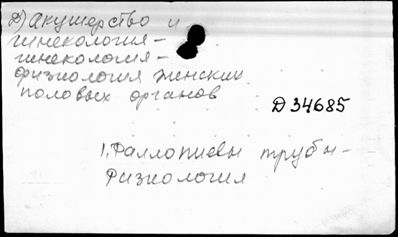 2) акушерство и
гинекология —
гинекология —
физиология женских
половых органов
Д 34685
1. Фаллопиевы трубы —
Физиология